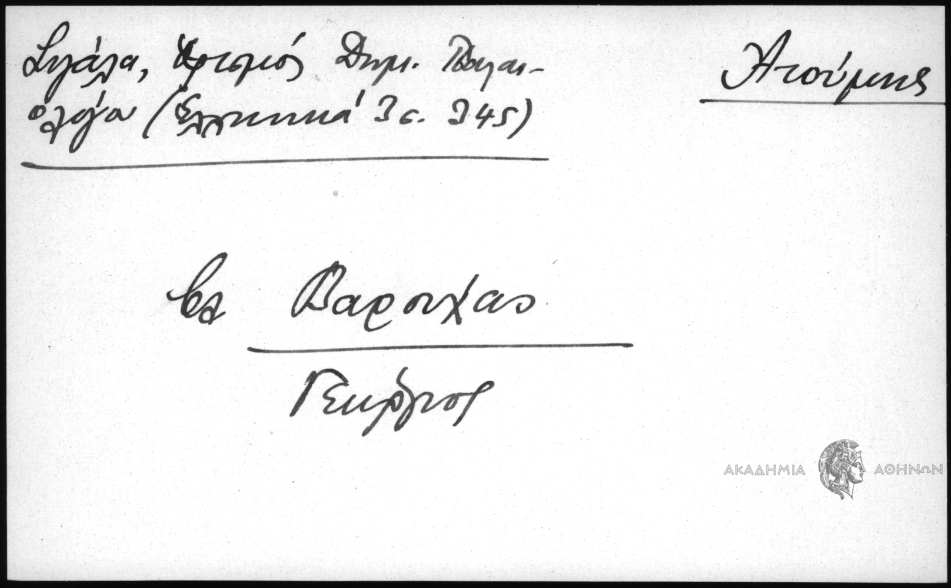 Σιγάλα, Ορισμός Δημ. Παλαι-
ολόγου (Ελληνικά 3 σ. 345)
Ατούμης
βλ Βαρούχας
Γεώργιος
ΑΚΑΔΗΜΙΑ ΑΘΗΝΩΝ